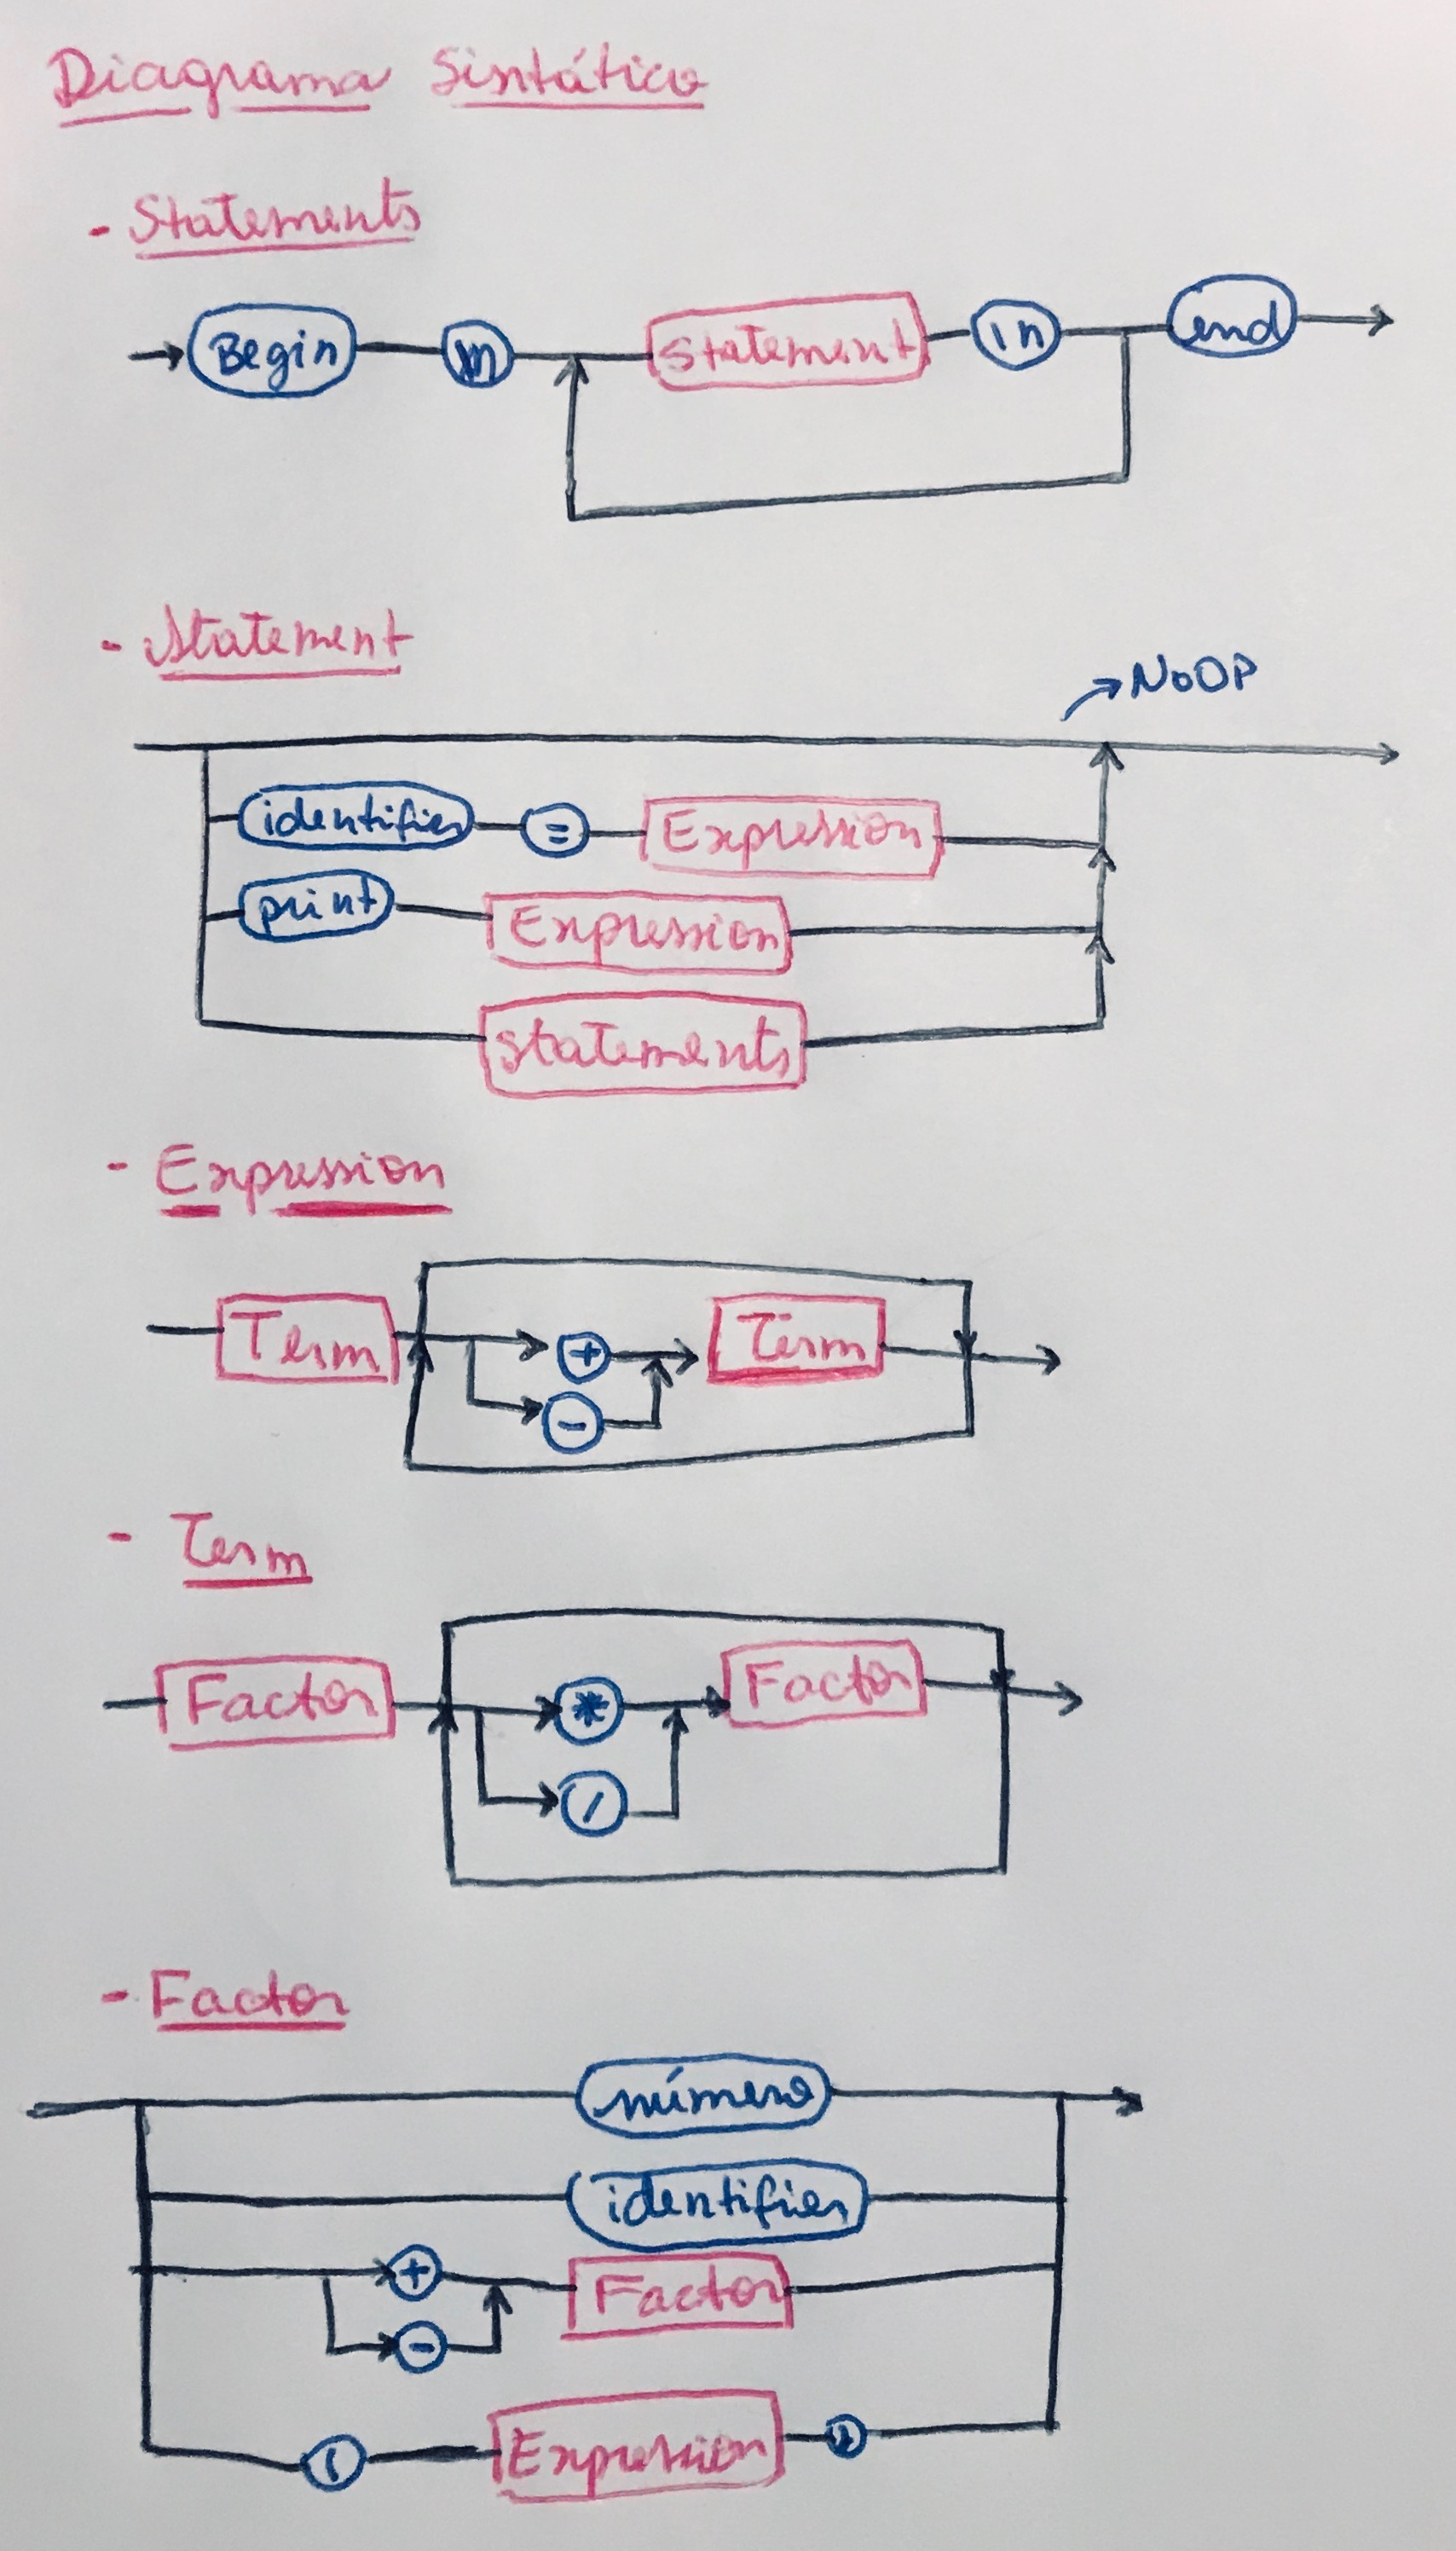 Diagrama Sintático
- Statements
Begin \n Statement \n end
- Statement
NoOP
identifier = Expression
print Expression
statements
- Expression
Term + Term
-
- Term
Factor * Factor
/
- Factor
número
identifier
+ Factor
-
( Expression )